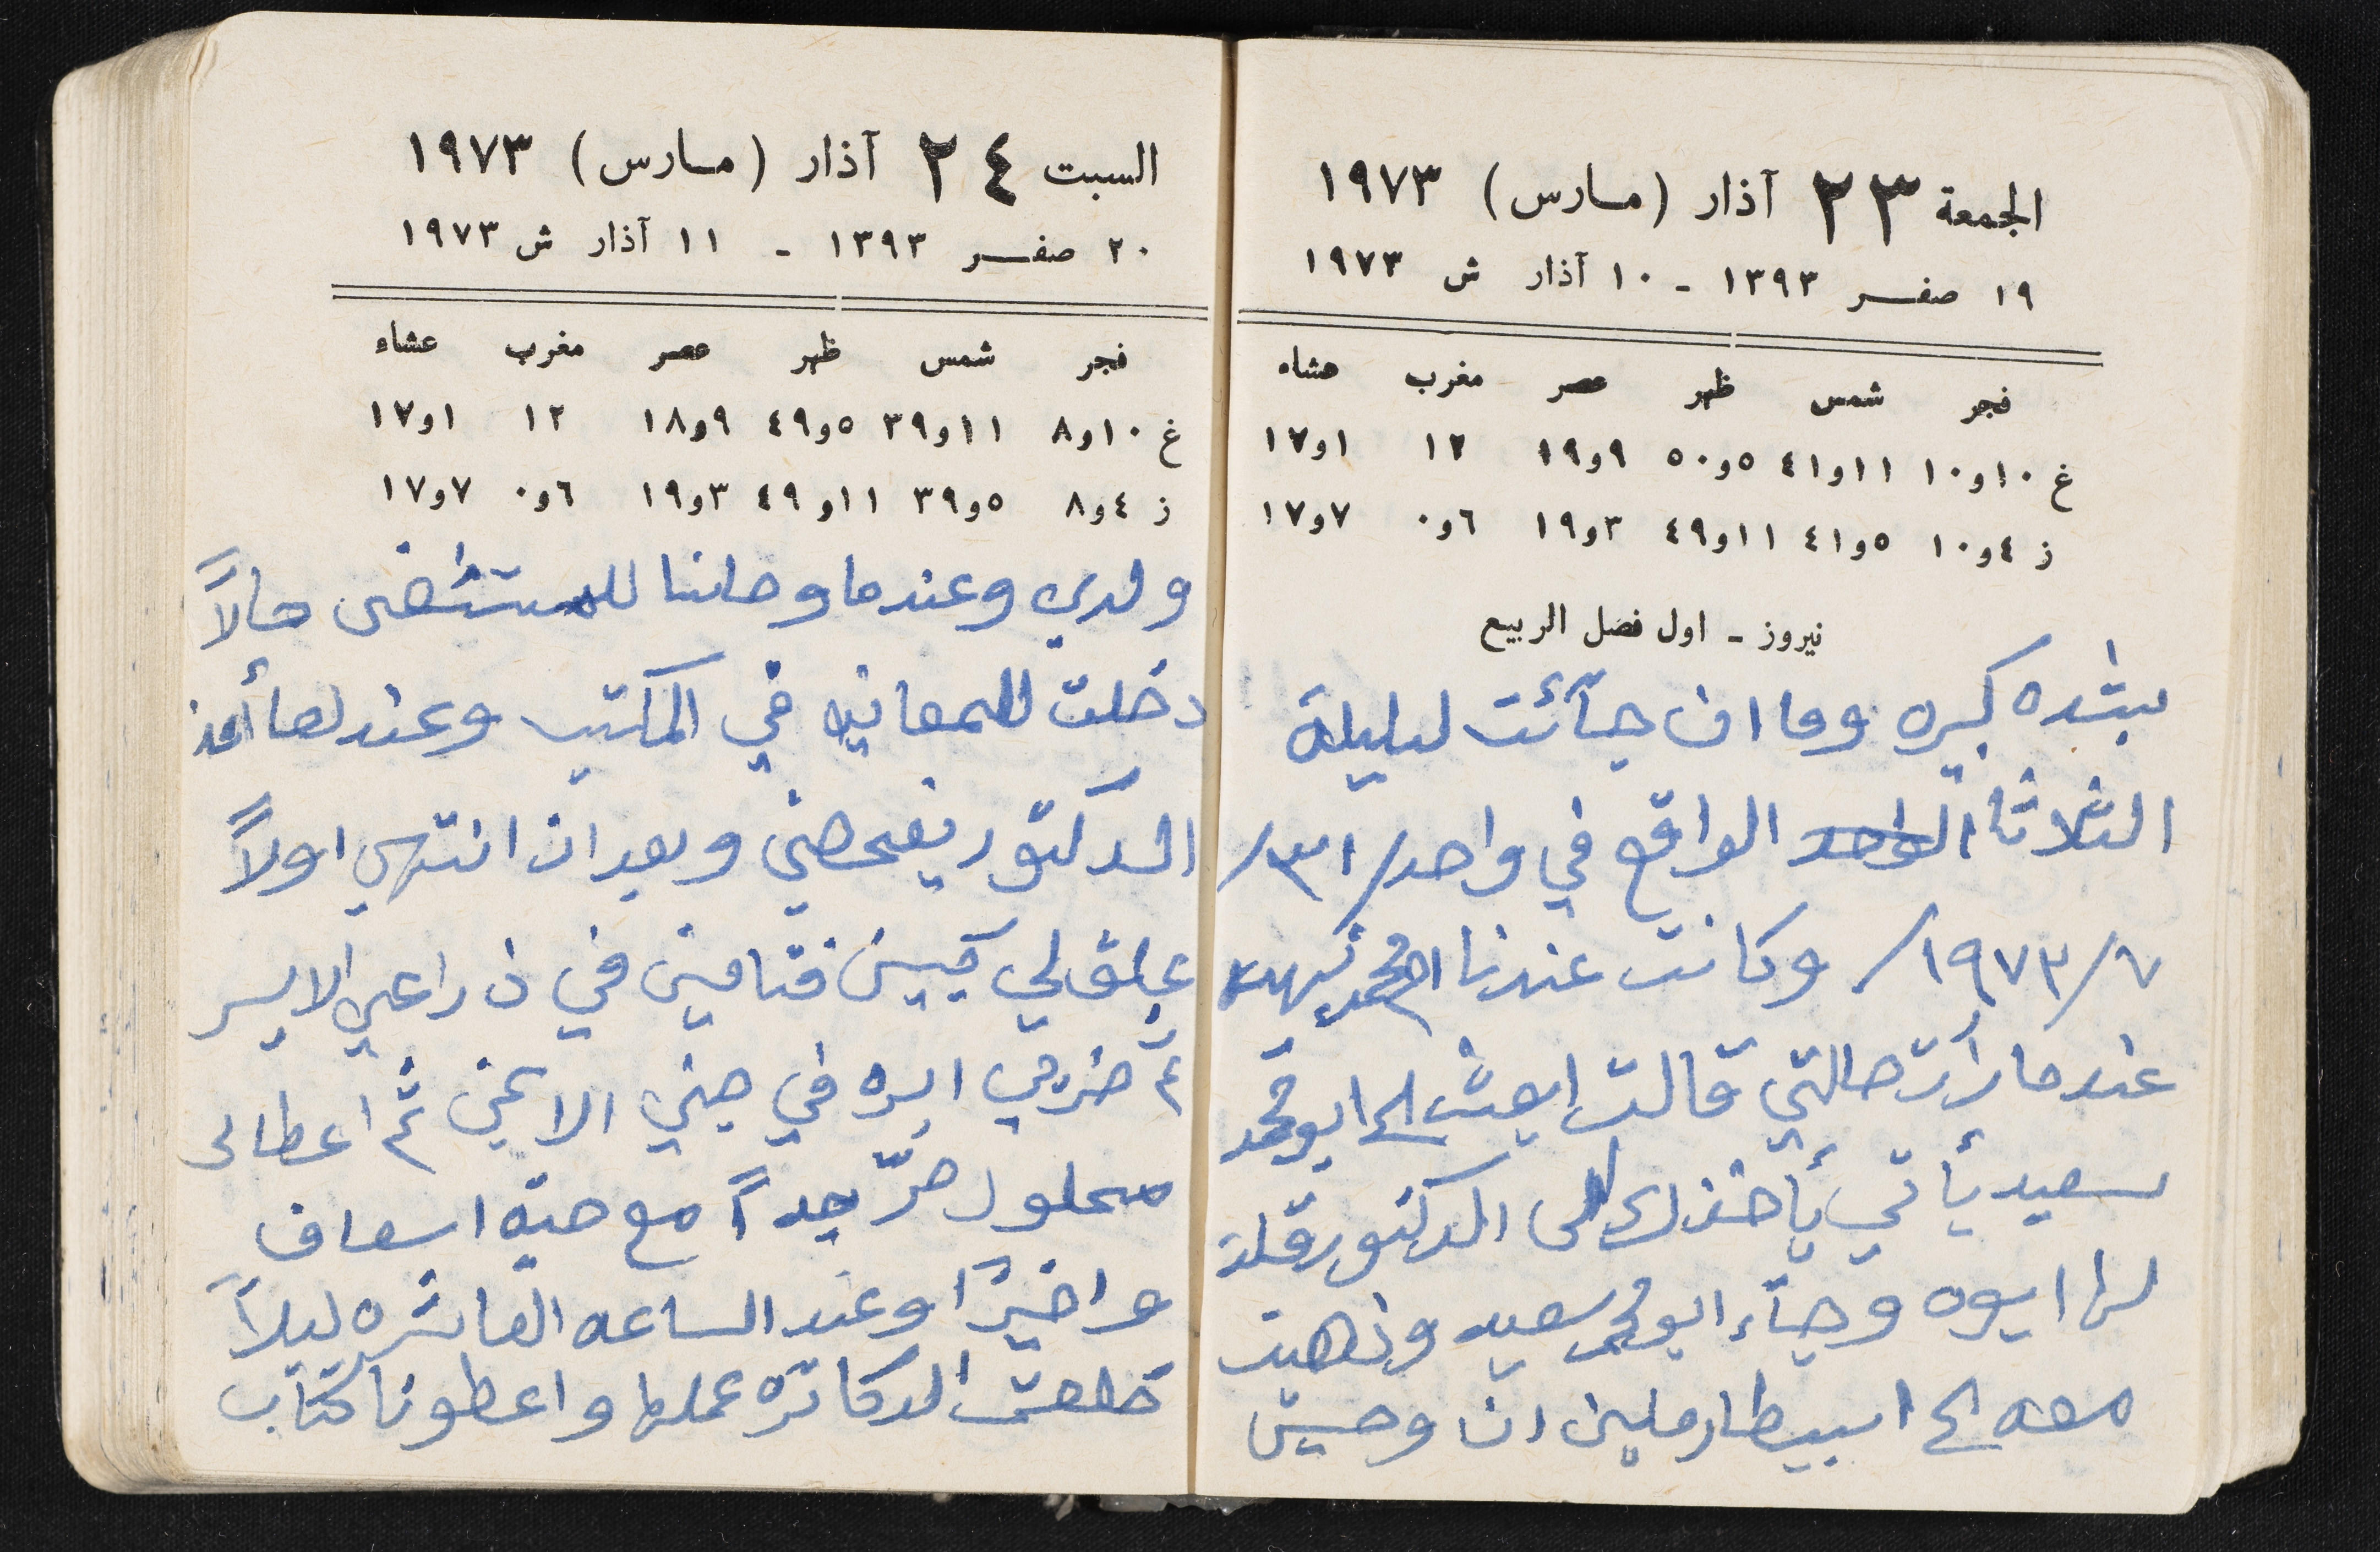 الجمعة ٢٣ آذار (مارس) ١٩٧٣
١٩ صفر ١٣٩٣ - ١٠ آذار ش ١٩٧٣
فجر شمس ظهر عصر مغرب عشاء
غ ١٠و١٠ ١١و٤١ ٥و٥٠ ٩و١٩ ١٢ ١و١٧
ز ٤و١٠ ٥و٤١ ١١و٤٩ ٣و١٩ ٦و٠ ٧و١٧
نيروز - اول فصل الربيع
بشده كبيره وما ان جآئت لليلة
الثلاثا الواحد الواقع في واحد/٣١/
٧/١٩٧٣/ وكانت عندنا ام محمد
عندما رأت حالتي قالت ابعث الى ابو محمد
سعيد يأتي يأخذك الى الدكتور قلت
لها ايوه وجآء ابو محمد سعيد وذهبت
معه الى اسبيطار ملين انا وحسين
السبت ٢٤ آذار (مارس) ١٩٧٣
٢٠ صفر ١٣٩٣ - ١١ آذار ش ١٩٧٣
فجر شمس ظهر عصر مغرب عشاء
غ ١٠و٨ ١١و٣٩ ٥و٤٩ ٩و١٨ ١٢ ١و١٧
ز ٤و٨ ٥و٣٩ ١١و٤٩ ٣و١٩ ٦و٠ ٧و١٧
ولدي وعندما وصلنا للمستشفى حالاً
دخلت للمعاينه في المكتب وعندها أخذ
الدكتور يفحصني وبعد ان انتهى اولاً
علق لي كيس فتامين في ذراعي الايسر
ثم ضربي ابره في جنبي الايمن ثم اعطالى
محلول مرّ جداً مع حبة اسعاف
واخيراً وعند الساعه العاشره ليلاً
خلصت الدكاتره عملها واعطونا كتاب